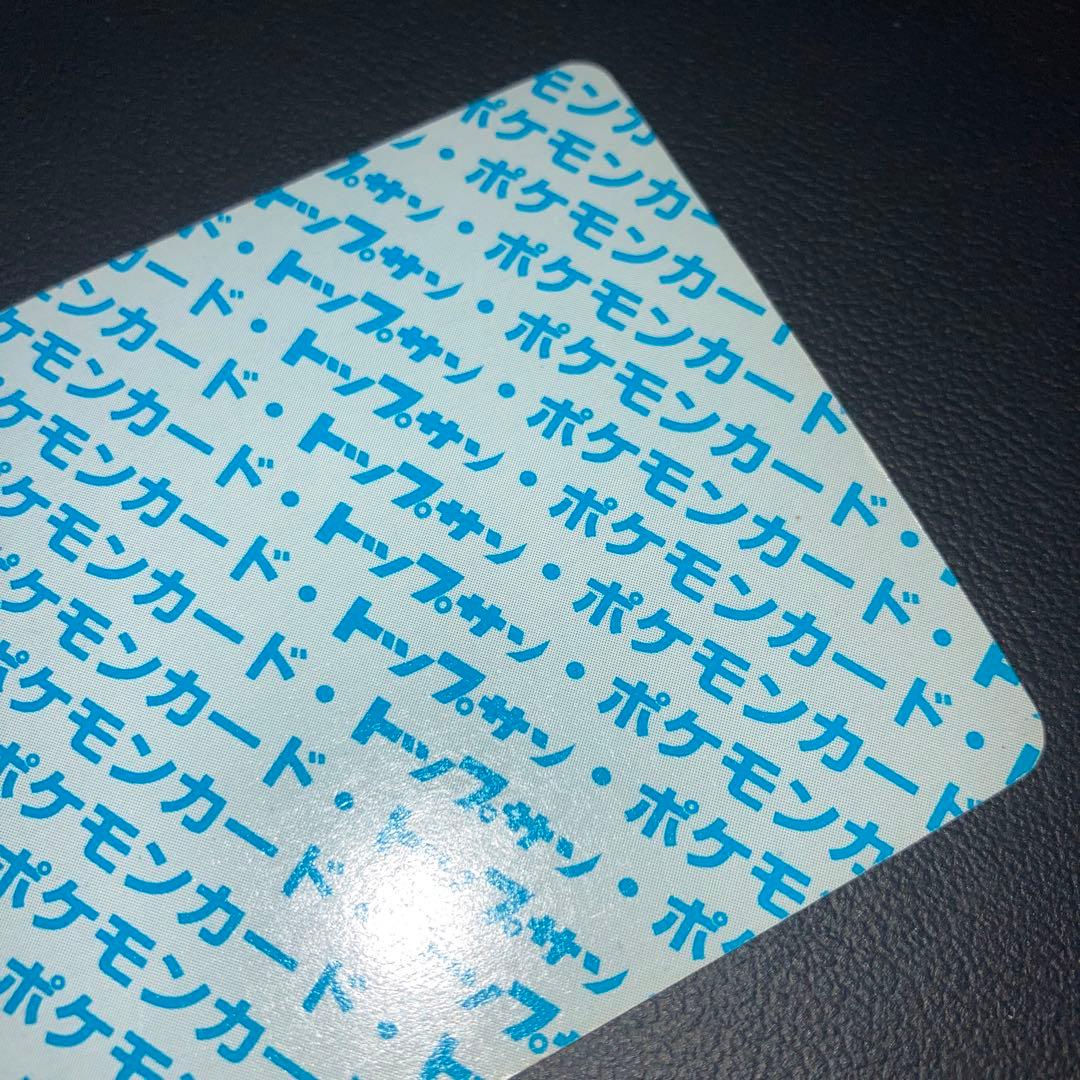 モンカ
ポケモンカー
ン・ポケモンカード
プサン・ポケモンカード・
ド・トップサン・ポケモンカード・ト
カード・トップサン・ポケモンカード・ト
ンカード・トップサン・ポケモンカード
ケモンカード・トップサン・ポケモンカ
ケモンカード・トップサン・ポケモ
ポケモンカード・トップサン・ポケ
ポケモンカード・トップサン
ポケモンカード・トップ
ポケモンカード・ト
ポケモンカ